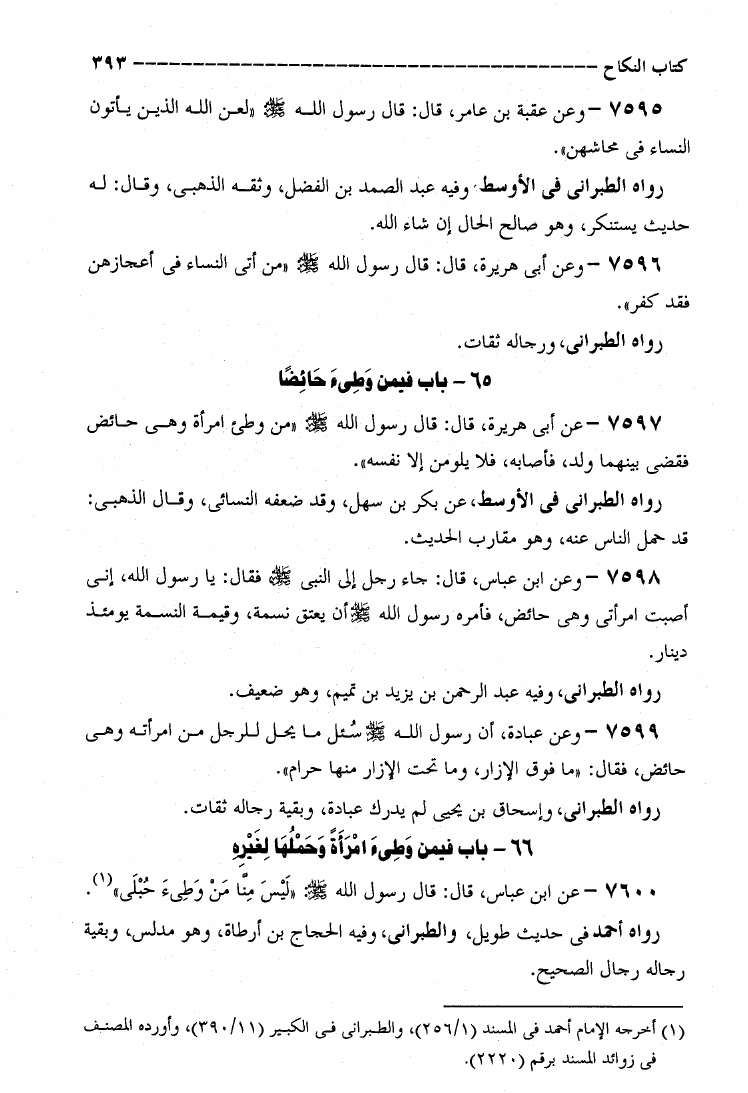 كتاب النكاح ------------------------------------- ٣٩٣
٧٥٩٥ – وعن عقبة بن عامر، قال: قال رسول اللـه ﷺ «لعـن اللـه الذيـن يـأتون
النساء فى محاشهن».
رواه الطبرانى فى الأوسط، وفيه عبد الصمد بن الفضل، وثقـه الذهبـى، وقـال: لـه
حديث يستنكر، وهو صالح الحال إن شاء الله.
٧٥٩٦ – وعن أبى هريرة، قال: قال رسول الله ﷺ «من أتى النساء فى أعجازهن
فقد كفر».
رواه الطبرانى، ورجاله ثقات.
٦٥ – باب فيمن وَطِىءَ حَائِضًا
٧٥٩٧ – عن أبى هريرة، قال: قال رسول الله ﷺ «من وطئ امرأة وهـى حـائض
فقضى بينهما ولد، فأصابه، فلا يلومن إلا نفسه».
رواه الطبرانى فى الأوسط، عن بكر بن سهل، وقد ضعفه النسائى، وقـال الذهبـى:
قد حمل الناس عنه، وهو مقارب الحديث.
٧٥٩٨ – وعن ابن عباس، قال: جاء رجل إلى النبى ﷺ فقال: يا رسول الله، إنـى
أصبت امرأتى وهى حائض، فأمره رسول الله ﷺ أن يعتق نسمة، وقيمـة النسـمة يومئـذ
دينار.
رواه الطبرانى، وفيه عبد الرحمن بن يزيد بن تميم، وهو ضعيف.
٧٥٩٩ – وعن عبادة، أن رسول اللـه ﷺ سُـئل مـا يحـل للـرجل مـن امرأتـه وهـى
حائض، فقال: «ما فوق الإزار، وما تحت الإزار منها حرام».
رواه الطبرانى، وإسحاق بن يحيى لم يدرك عبادة، وبقية رجاله ثقات.
٦٦ – باب فيمن وَطِىءَ امْرَأَةً وَحَمْلُهَا لِغَيْرِهِ
٧٦٠٠ – عن ابن عباس، قال: قال رسول الله ﷺ: «لَيْسَ مِنَّا مَنْ وَطِىءَ حُبْلَى»(١).
رواه أحمد فى حديث طويل، والطبرانى، وفيه الحجاج بن أرطاة، وهو مدلس، وبقية
رجاله رجال الصحيح.
(١) أخرجه الإمام أحمد فى المسند (٢٥٦/١)، والطـبرانى فـى الكبـير (٣٩٠/١١)، وأورده المصنـف
فى زوائد المسند برقم (٢٢٢٠).